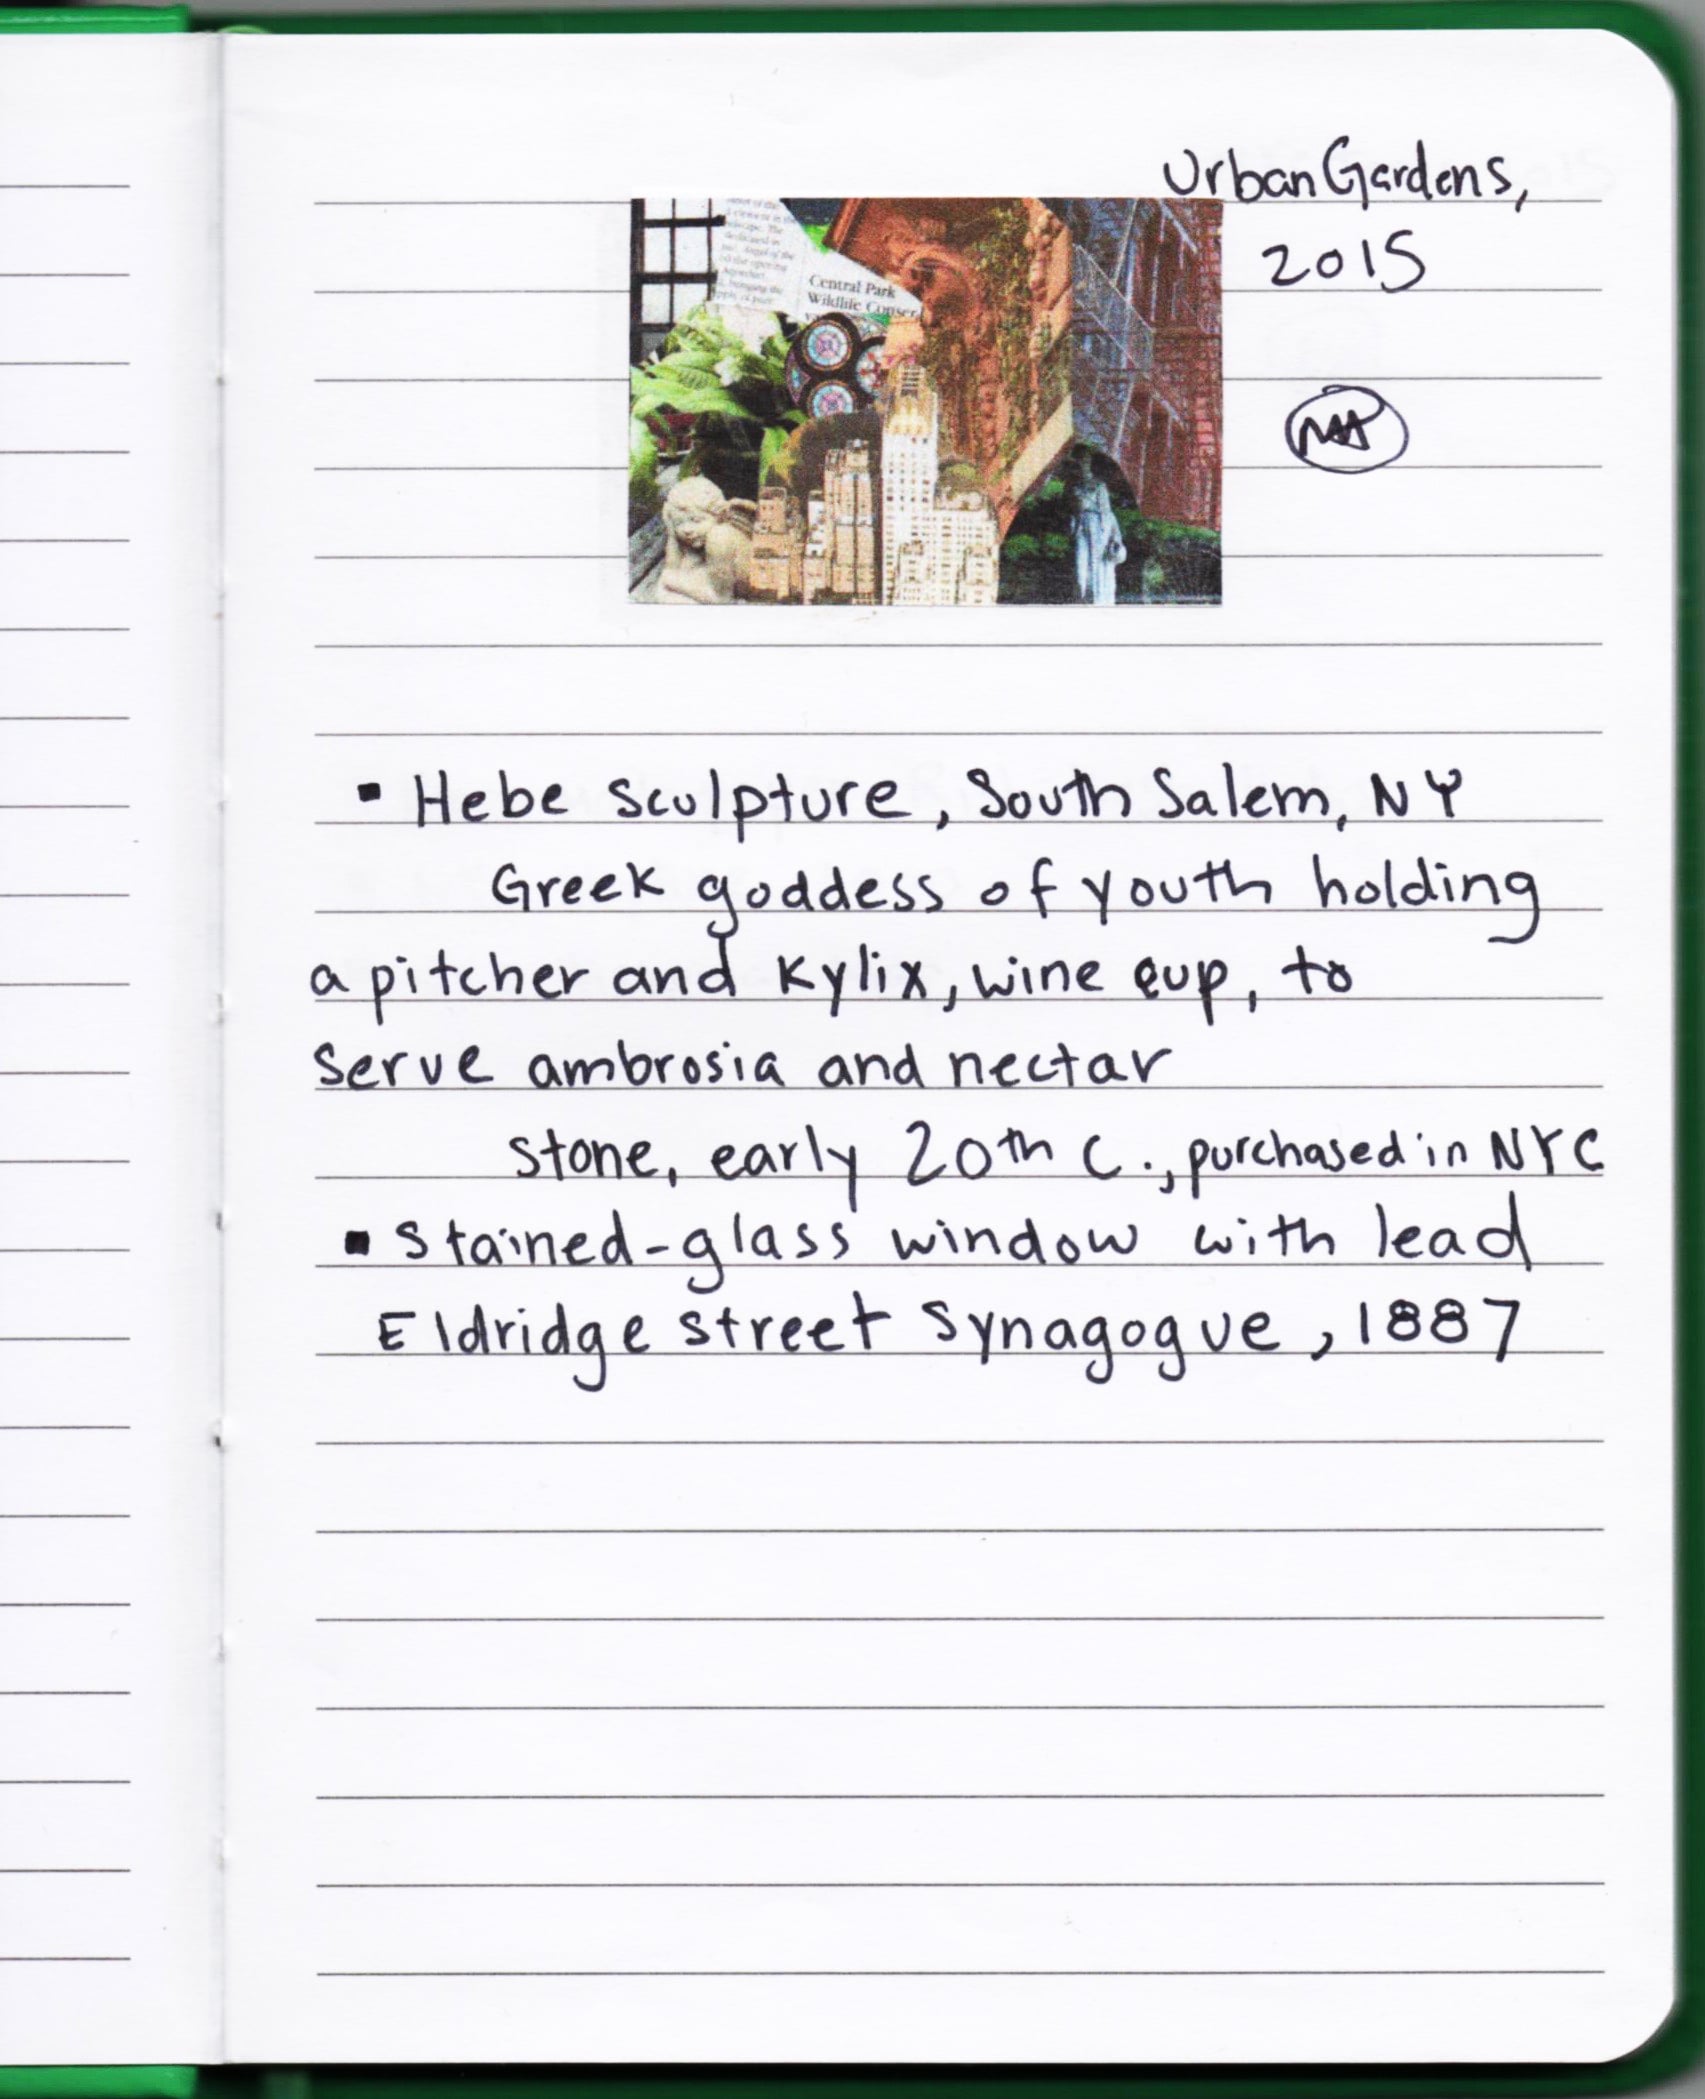 Urban Gardens,
2015
Central Park
Wildlife Conser
▪ Hebe sculpture, South Salem, NY
Greek goddess of youth holding
a pitcher and kylix, wine cup, to
serve ambrosia and nectar
stone, early 20th c., purchased in NYC
▪ Stained-glass window with lead
Eldridge street Synagogue, 1887